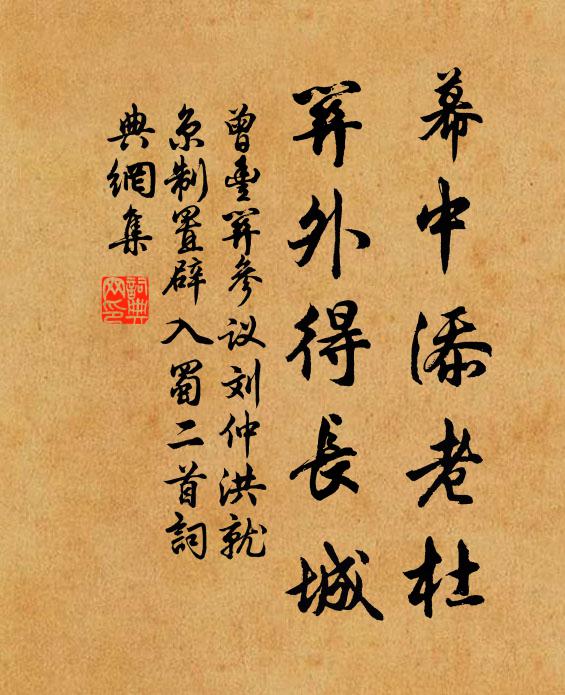 幕中添老杜
外得長城
曾豐參议刘仲洪就
京制置辟入蜀二首詞
典網集
詞典
网印